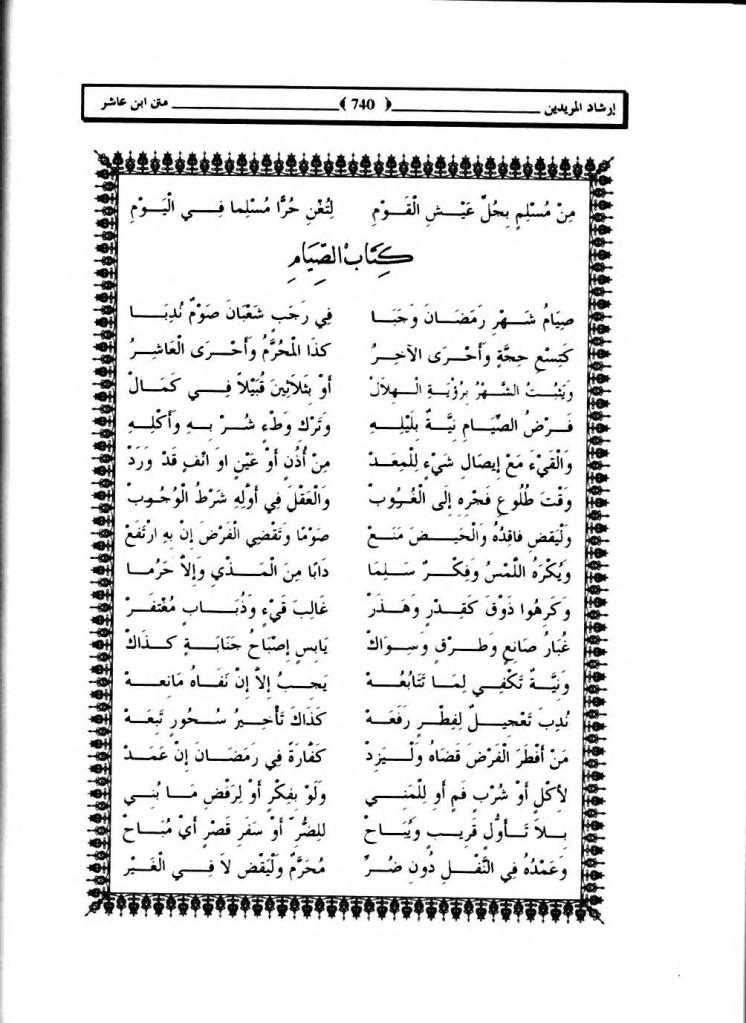 إرشاد المريدين ﴿ 740 ﴾ متن ابن عاشر
مِنْ مُسْلِمٍ بِجُلِّ عَيْشِ الْقَوْمِ لِتُغْنِ حُرًّا مُسْلِما فِي الْيَوْمِ
كِتَابُ الصِّيَامِ
صِيَامُ شَهْرِ رَمَضَانَ وَجَبَا فِي رَجَبٍ شَعْبَانَ صَوْمٌ نُدِبَا
كَتِسْعِ حِجَّةٍ وَأَحْرَى الآخِرُ كَذَا الْمُحَرَّمُ وَأَحْرَى الْعَاشِرُ
وَيَثْبُتُ الشَّهْرُ بِرُؤْيَةِ الْهِلاَلْ أَوْ بِثَلاَثِينَ قُبَيْلاً فِي كَمَالْ
فَرْضُ الصِّيَامِ نِيَّةٌ بِلَيْلِهِ وَتَرْكُ وَطْءٍ شُرْبِهِ وَأَكْلِهِ
وَالْقَيْءِ مَعْ إِيصَالِ شَيْءٍ لِلْمِعَدْ مِنْ أُذُنٍ أَوْ عَيْنٍ اوَ انْفٍ قَدْ وَرَدْ
وَقْتَ طُلُوعِ فَجْرِهِ إِلَى الْغُيُوبْ وَالْعَقْلُ فِي أَوَّلِهِ شَرْطُ الْوُجُوبْ
وَلْيَقْضِ فَاقِدُهُ وَالْحَيْضُ مَنَعْ صَوْمًا وَتَقْضِي الْفَرْضَ إِنْ بِهِ ارْتَفَعْ
وَيُكْرَهُ اللَّمْسُ وَفِكْرٌ سَلِمَا دَابًا مِنَ الْمَذْيِ وَإِلاَّ حَرُمَا
وَكَرِهُوا ذَوْقَ كَقِدْرٍ وَهَذَرْ غَالِبُ قَيْءٍ وَذُبَابٍ مُغْتَفَرْ
غُبَارُ صَانِعٍ وَطُرْقٍ وَسِوَاكْ يَابِسٍ إِصْبَاحُ جَنَابَةٍ كَذَاكْ
وَنِيَّةٌ تَكْفِي لِمَا تَتَابُعُهْ يَجِبُ إِلاَّ إِنْ نَفَاهُ مَانِعُهْ
نُدِبَ تَعْجِيلٌ لِفِطْرٍ رَفَعَهْ كَذَاكَ تَأْخِيرُ سُحُورٍ تَبِعَهْ
مَنْ أَفْطَرَ الْفَرْضَ قَضَاهُ وَلْيَزِدْ كَفَّارَةً فِي رَمَضَانَ إِنْ عَمَدْ
لأَكْلٍ أَوْ شُرْبِ فَمٍ أَو لِلْمَنِي وَلَوْ بِفِكْرٍ أَوْ لِرَفْضِ مَا بُنِي
بِلاَ تَأَوُّلٍ قَرِيبٍ وَيُبَاحْ لِلضُّرِّ أَوْ سَفَرِ قَصْرٍ أَيْ مُبَاحْ
وَعَمْدُهُ فِي النَّفْلِ دُونَ ضُرِّ مُحَرَّمٌ وَلْيَقْضِ لاَ فِي الْغَيْرِ